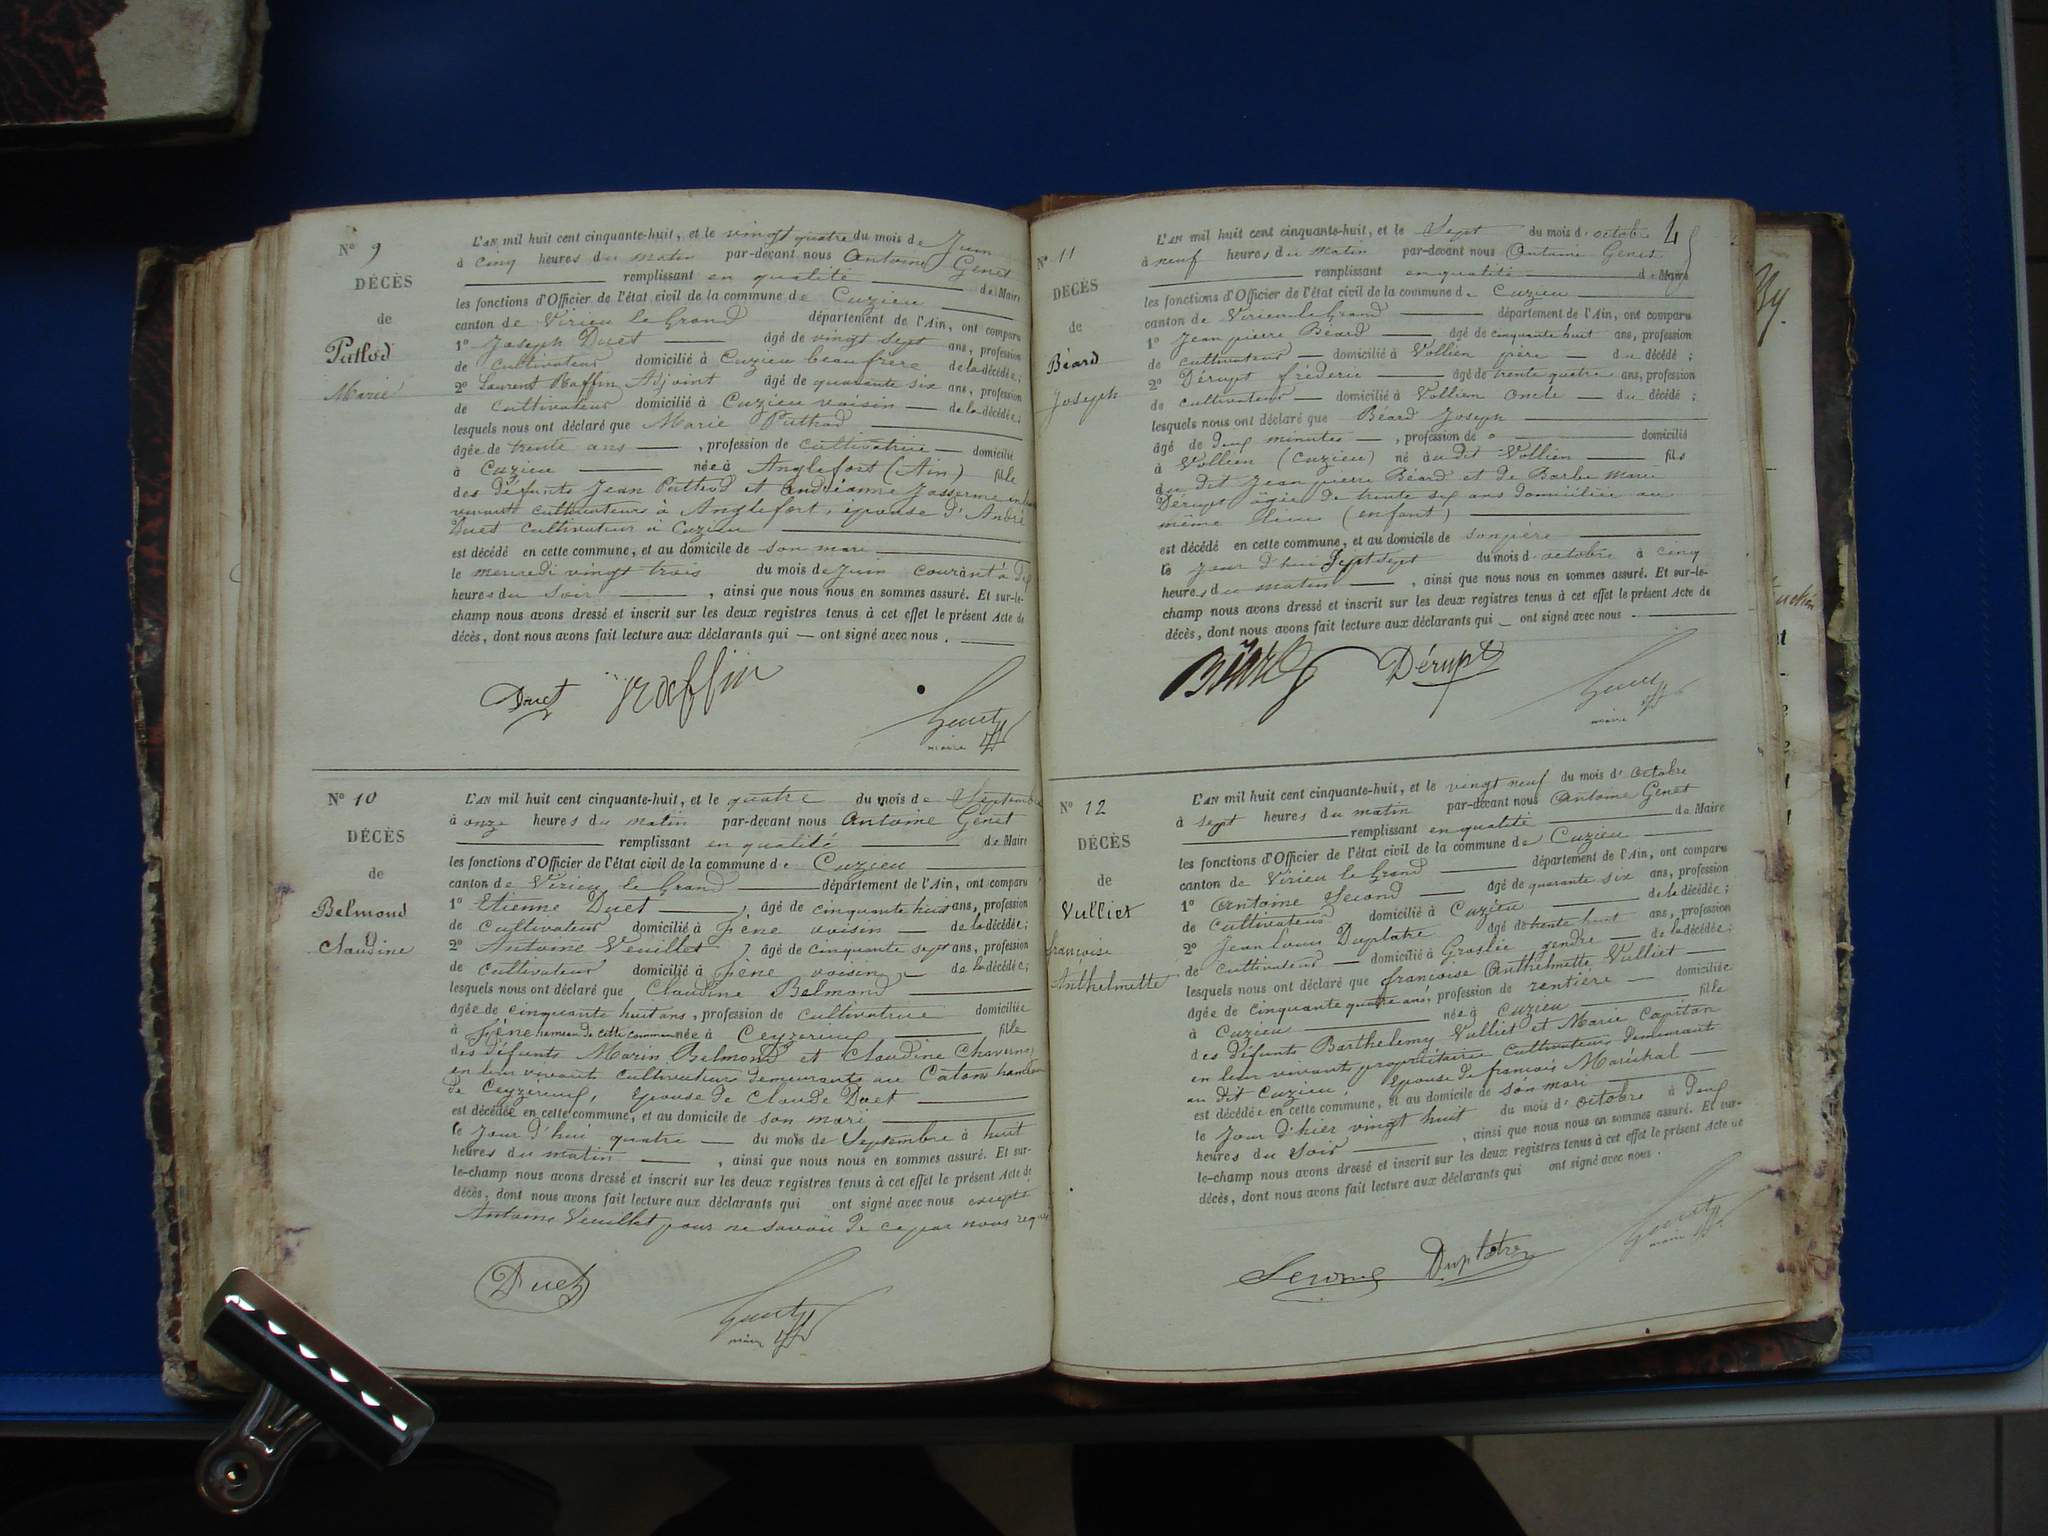 N° 9
DÉCÈS
de
Puthod
Marie
L'AN mil huit cent cinquante-huit, et le vingt quatre du mois de Juin
à cinq heures du matin par-devant nous Antoine Genet
remplissant en qualité de Maire
les fonctions d'Officier de l'état civil de la commune de Cuzieu
canton de Virieu le Grand département de l'Ain, ont comparu
1° Joseph Duet âgé de vingt sept ans, profession
de cultivateur domicilié à Cuzieu beau frère de la décédée;
2° Laurent Raffin Adjoint âgé de quarante six ans, profession
de cultivateur domicilié à Cuzieu voisin de la décédée;
lesquels nous ont déclaré que Marie Puthod
âgée de trente ans, profession de cultivatrice domicilié
à Cuzieu née à Anglefort (Ain) fille
des défunts Jean Puthod et Andréanne en leur
vivant cultivateurs à Anglefort, épouse d'André
Duet cultivateur à Cuzieu
est décédé en cette commune, et au domicile de son mari
le mercredi vingt trois du mois de Juin courant à dix
heures du soir, ainsi que nous nous en sommes assuré. Et sur-le-
champ nous avons dressé et inscrit sur les deux registres tenus à cet effet le présent Acte de
décès, dont nous avons fait lecture aux déclarants qui — ont signé avec nous.
Duet Raffin
Genet
maire
N° 10
DÉCÈS
de
Belmond
Claudine
L'AN mil huit cent cinquante-huit, et le quatre du mois de Septembre
à onze heures du matin par-devant nous Antoine Genet
remplissant en qualité de Maire
les fonctions d'Officier de l'état civil de la commune de Cuzieu
canton de Virieu le Grand département de l'Ain, ont comparu
1° Etienne Duet, âgé de cinquante huit ans, profession
de cultivateur domicilié à Jène voisin — de la décédée;
2° Antoine Veuillet, âgé de cinquante sept ans, profession
de cultivateur domicilié à Jène voisin — de la décédée;
lesquels nous ont déclaré que Claudine Belmond
âgée de cinquante huit ans, profession de cultivatrice domiciliée
à Jène hameau de cette commune née à Ceyzerieu fille
des défunts Marin Belmond et Claudine Chavernoz
en leur vivants cultivateurs demeurants au Catons hameau
de Ceyzérieu, épouse de Claude Duet
est décédée en cette commune, et au domicile de son mari
le Jour d'hui quatre — du mois de Septembre à huit
heures du matin, ainsi que nous nous en sommes assuré. Et sur-
le-champ nous avons dressé et inscrit sur les deux registres tenus à cet effet le présent Acte de
décès, dont nous avons fait lecture aux déclarants qui ont signé avec nous excepté
Antoine Veuillet pour ne savoir de ce par nous requis
Duet
Genet
maire
N° 11
DÉCÈS
de
Béard
Joseph
L'AN mil huit cent cinquante-huit, et le Sept du mois d'octobre
à neuf heures du matin par-devant nous Antoine Genet
remplissant en qualité de Maire
les fonctions d'Officier de l'état civil de la commune de Cuzieu
canton de Virieu le Grand département de l'Ain, ont comparu
1° Jean pierre Béard âgé de cinquante huit ans, profession
de cultivateur — domicilié à Vollien père — du décédé;
2° Dérupt fréderic âgé de trente quatre ans, profession
de cultivateur — domicilié à Vollien oncle — du décédé;
lesquels nous ont déclaré que Béard Joseph
âgé de deux minutes —, profession de domicilié
à Vollien (Cuzieu) né au dit Vollien — fils
du dit Jean pierre Béard et de Barbe Marie
Dérupt âgée de trente six ans domiciliée au
même lieu (enfant)
est décédé en cette commune, et au domicile de son père
le Jour d'hui Sept sept du mois d'octobre à cinq
heures du matin —, ainsi que nous nous en sommes assuré. Et sur-le-
champ nous avons dressé et inscrit sur les deux registres tenus à cet effet le présent Acte de
décès, dont nous avons fait lecture aux déclarants qui — ont signé avec nous.
Béard Dérupt
Genet
maire
N° 12
DÉCÈS
de
Vulliet
françoise
Anthelmette
L'AN mil huit cent cinquante-huit, et le vingt neuf du mois d'octobre
à sept heures du matin par-devant nous Antoine Genet
remplissant en qualité de Maire
les fonctions d'Officier de l'état civil de la commune de Cuzieu
canton de Virieu le Grand département de l'Ain, ont comparu
1° Antoine Second âgé de quarante six ans, profession
de cultivateur domicilié à Cuzieu de la décédée;
2° Jean Louis Duplatre âgé de trente huit ans, profession
de cultivateur — domicilié à Groslée gendre — de la décédée;
lesquels nous ont déclaré que françoise Anthelmette Vulliet
âgée de cinquante quatre ans, profession de rentière — domiciliée
à Cuzieu née à Cuzieu fille
des défunts Barthelemy Vulliet et Marie Capitan
en leur vivant propriétaires cultivateurs demeurants
au dit Cuzieu, Epouse de françois Maréchal
est décédée en cette commune, et au domicile de son mari
le Jour d'hier vingt huit du mois d'octobre à deux
heures du soir, ainsi que nous nous en sommes assuré. Et sur-
le-champ nous avons dressé et inscrit sur les deux registres tenus à cet effet le présent Acte de
décès, dont nous avons fait lecture aux déclarants qui ont signé avec nous.
Genet
maire
Second Duplatre